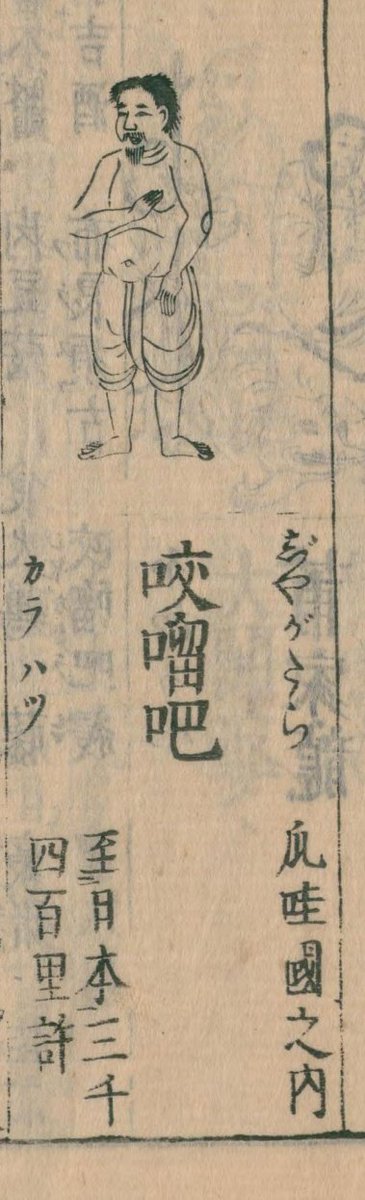 じやがたら
爪哇國之内
咬𠺕吧
カラハツ
至日本三千
四百里許